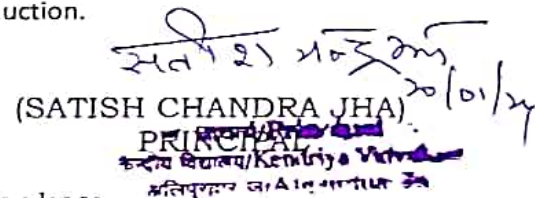 uction.
सतीश चन्द्र झा
20/01/24
(SATISH CHANDRA JHA)
PRINCIPAL
केन्द्रीय विद्यालय/Kendriya